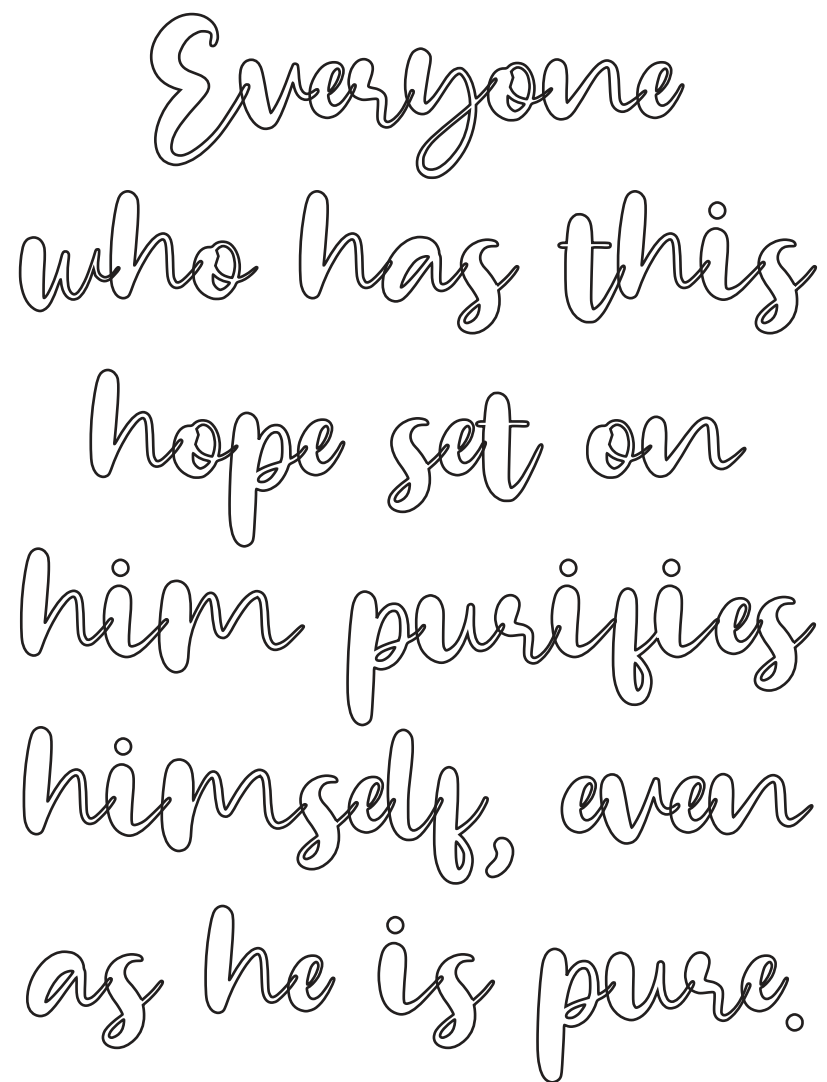 Everyone
who has this
hope set on
him purifies
himself, even
as he is pure.